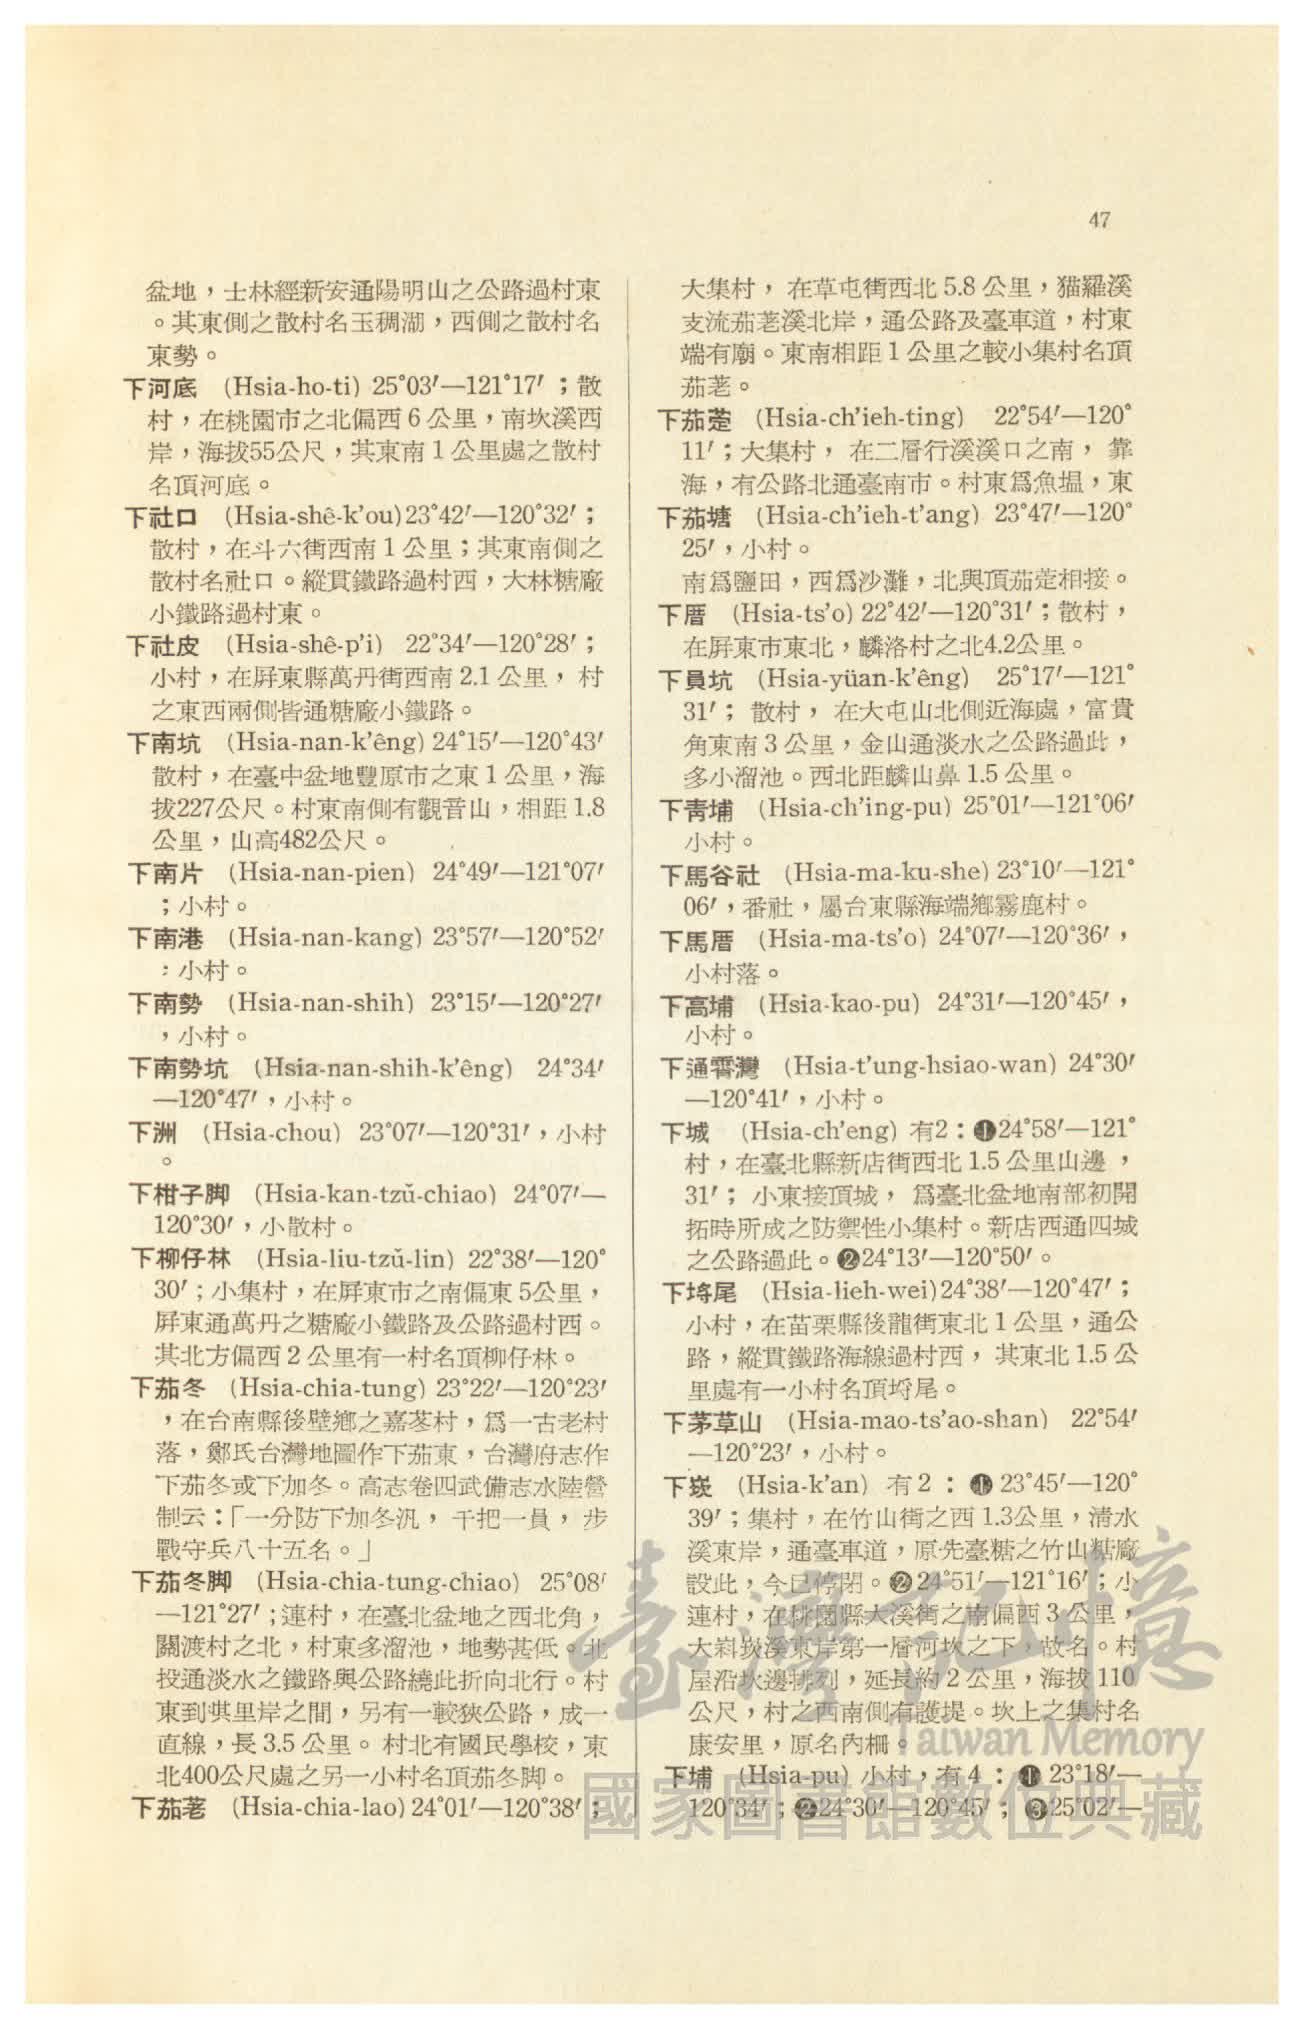 47
盆地，士林經新安通陽明山之公路過村東
。其東側之散村名玉稠湖，西側之散村名
東勢。
下河底　(Hsia-ho-ti) 25°03′—121°17′；散
村，在桃園市之北偏西6公里，南坎溪西
岸，海拔55公尺，其東南1公里處之散村
名頂河底。
下社口　(Hsia-shê-k'ou) 23°42′—120°32′；
散村，在斗六街西南1公里；其東南側之
散村名社口。縱貫鐵路過村西，大林糖廠
小鐵路過村東。
下社皮　(Hsia-shê-p'i)　22°34′—120°28′；
小村，在屏東縣萬丹街西南2.1公里，村
之東西兩側皆通糖廠小鐵路。
下南坑　(Hsia-nan-k'êng) 24°15′—120°43′
散村，在臺中盆地豐原市之東1公里，海
拔227公尺。村東南側有觀音山，相距1.8
公里，山高482公尺。
下南片　(Hsia-nan-pien)　24°49′—121°07′
；小村。
下南港　(Hsia-nan-kang) 23°57′—120°52′
：小村。
下南勢　(Hsia-nan-shih)　23°15′—120°27′
，小村。
下南勢坑　(Hsia-nan-shih-k'êng)　24°34′
—120°47′，小村。
下洲　(Hsia-chou)　23°07′—120°31′，小村
。
下柑子脚　(Hsia-kan-tzŭ-chiao)　24°07′—
120°30′，小散村。
下柳仔林　(Hsia-liu-tzŭ-lin) 22°38′—120°
30′；小集村，在屏東市之南偏東5公里，
屏東通萬丹之糖廠小鐵路及公路過村西。
其北方偏西2公里有一村名頂柳仔林。
下茄冬　(Hsia-chia-tung) 23°22′—120°23′
，在台南縣後壁鄉之嘉苳村，爲一古老村
落，鄭氏台灣地圖作下茄東，台灣府志作
下茄冬或下加冬。高志卷四武備志水陸營
制云：「一分防下加冬汛，千把一員，步
戰守兵八十五名。」
下茄冬脚　(Hsia-chia-tung-chiao)　25°08′
—121°27′；連村，在臺北盆地之西北角，
關渡村之北，村東多溜池，地勢甚低。北
投通淡水之鐵路與公路繞此折向北行。村
東到唭里岸之間，另有一較狹公路，成一
直線，長3.5公里。村北有國民學校，東
北400公尺處之另一小村名頂茄冬脚。
下茄荖　(Hsia-chia-lao) 24°01′—120°38′；
大集村，在草屯街西北5.8公里，猫羅溪
支流茄荖溪北岸，通公路及臺車道，村東
端有廟。東南相距1公里之較小集村名頂
茄荖。
下茄萣　(Hsia-ch'ieh-ting)　22°54′—120°
11′；大集村，在二層行溪溪口之南，靠
海，有公路北通臺南市。村東爲魚塭，東
下茄塘　(Hsia-ch'ieh-t'ang) 23°47′—120°
25′，小村。
南爲鹽田，西爲沙灘，北與頂茄萣相接。
下厝　(Hsia-ts'o) 22°42′—120°31′；散村，
在屏東市東北，麟洛村之北4.2公里。
下員坑　(Hsia-yüan-k'êng)　25°17′—121°
31′；散村，在大屯山北側近海處，富貴
角東南3公里，金山通淡水之公路過此，
多小溜池。西北距麟山鼻1.5公里。
下靑埔　(Hsia-ch'ing-pu) 25°01′—121°06′
小村。
下馬谷社　(Hsia-ma-ku-she) 23°10′—121°
06′，番社，屬台東縣海端鄉霧鹿村。
下馬厝　(Hsia-ma-ts'o)　24°07′—120°36′，
小村落。
下高埔　(Hsia-kao-pu)　24°31′—120°45′，
小村。
下通霄灣　(Hsia-t'ung-hsiao-wan) 24°30′
—120°41′，小村。
下城　(Hsia-ch'eng) 有2：❶24°58′—121°
村，在臺北縣新店街西北1.5公里山邊，
31′；小東接頂城，爲臺北盆地南部初開
拓時所成之防禦性小集村。新店西通四城
之公路過此。❷24°13′—120°50′。
下埒尾　(Hsia-lieh-wei) 24°38′—120°47′；
小村，在苗栗縣後龍街東北1公里，通公
路，縱貫鐵路海線過村西，其東北1.5公
里處有一小村名頂埒尾。
下茅草山　(Hsia-mao-ts'ao-shan)　22°54′
—120°23′，小村。
下崁　(Hsia-k'an) 有2：❶23°45′—120°
39′；集村，在竹山街之西1.3公里，淸水
溪東岸，通臺車道，原先臺糖之竹山糖廠
設此，今已停閉。❷24°51′—121°16′；小
連村，在桃園縣大溪街之南偏西3公里，
大嵙崁溪東岸第一層河坎之下，故名。村
屋沿坎邊排列，延長約2公里，海拔110
公尺，村之西南側有護堤。坎上之集村名
康安里，原名內柵。
下埔　(Hsia-pu) 小村，有4：❶23°18′—
120°34′；❷24°30′—120°45′；❸25°02′—
臺灣記憶
Taiwan Memory
國家圖書館數位典藏